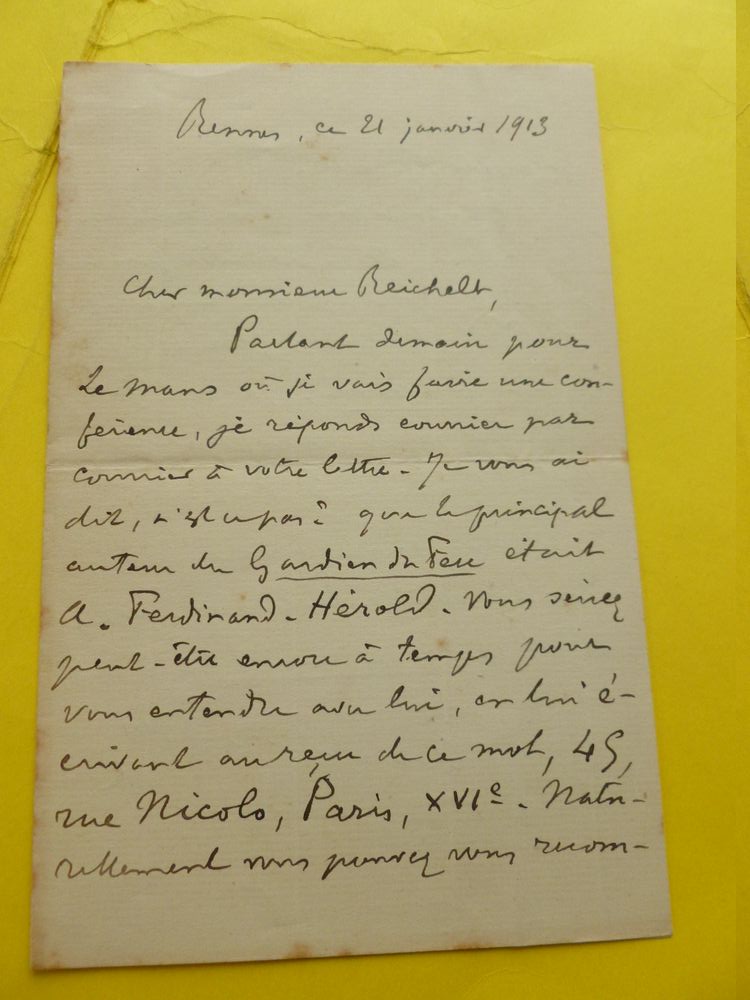 Rennes, ce 21 janvier 1913
Cher monsieur Reichelt,
Partant demain pour
Le Mans où je vais faire une con-
férence, je réponds courrier par
courrier à votre lettre. Je vous ai
dit, n'est ce pas? que le principal
auteur du Gardien du Feu était
A. Ferdinand-Hérold. Vous seriez
peut-être encore à temps pour
vous entendre avec lui, en lui é-
crivant au reçu de ce mot, 45,
rue Nicolo, Paris, XVIe. Natu-
rellement vous pouvez vous recom-